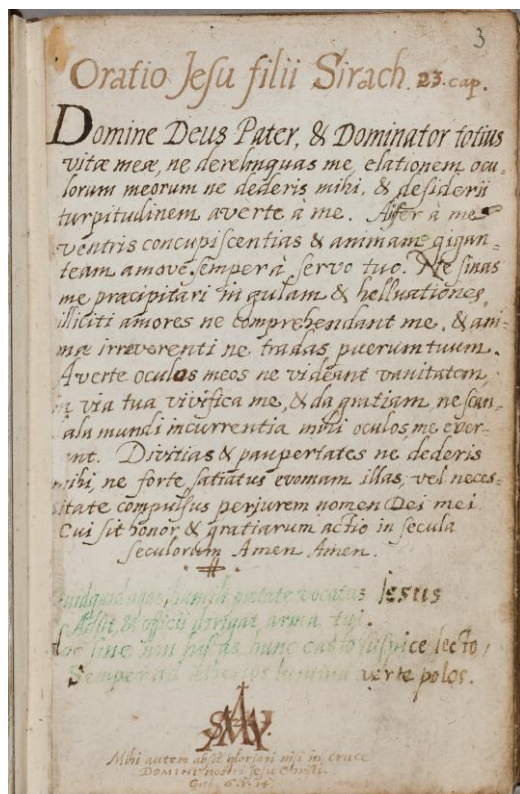 3
Oratio Jesu filii Sirach. 23. cap.
Domine Deus Pater, & Dominator totius
vitæ meæ, ne derelinquas me, elationem ocu-
lorum meorum ne dederis mihi, & desiderii
turpitudinem averte à me. Aufer à me
ventris concupiscentias & animam gigan=
team amove semper à servo tuo. Ne sinas
me præcipitari in gulam & helluationes,
illiciti amores ne comprehendant me, & ani=
mæ irreverenti ne tradas puerum tuum.
Averte oculos meos ne videant vanitatem,
in via tua vivifica me, & da gratiam, ne scan=
ala mundi incurrentia mihi oculos, me ever=
nt. Divitias & paupertates ne dederis
mihi, ne forte satiatus evomam illas, vel neces=
sitate compulsus perjurem nomen Dei mei.
Cui sit honor & gratiarum actio in secula
seculorum Amen Amen.
uidquid agas, humili pietate vocatus Iesus
Adsit, & officii dirigat arma tui.
hunc casto suspice lecto,
Semper ad lumina verte polos.
Mihi autem absit gloriari nisi in cruce
DOMINI nostri Jesu Christi.
Gal. 6. v. 14